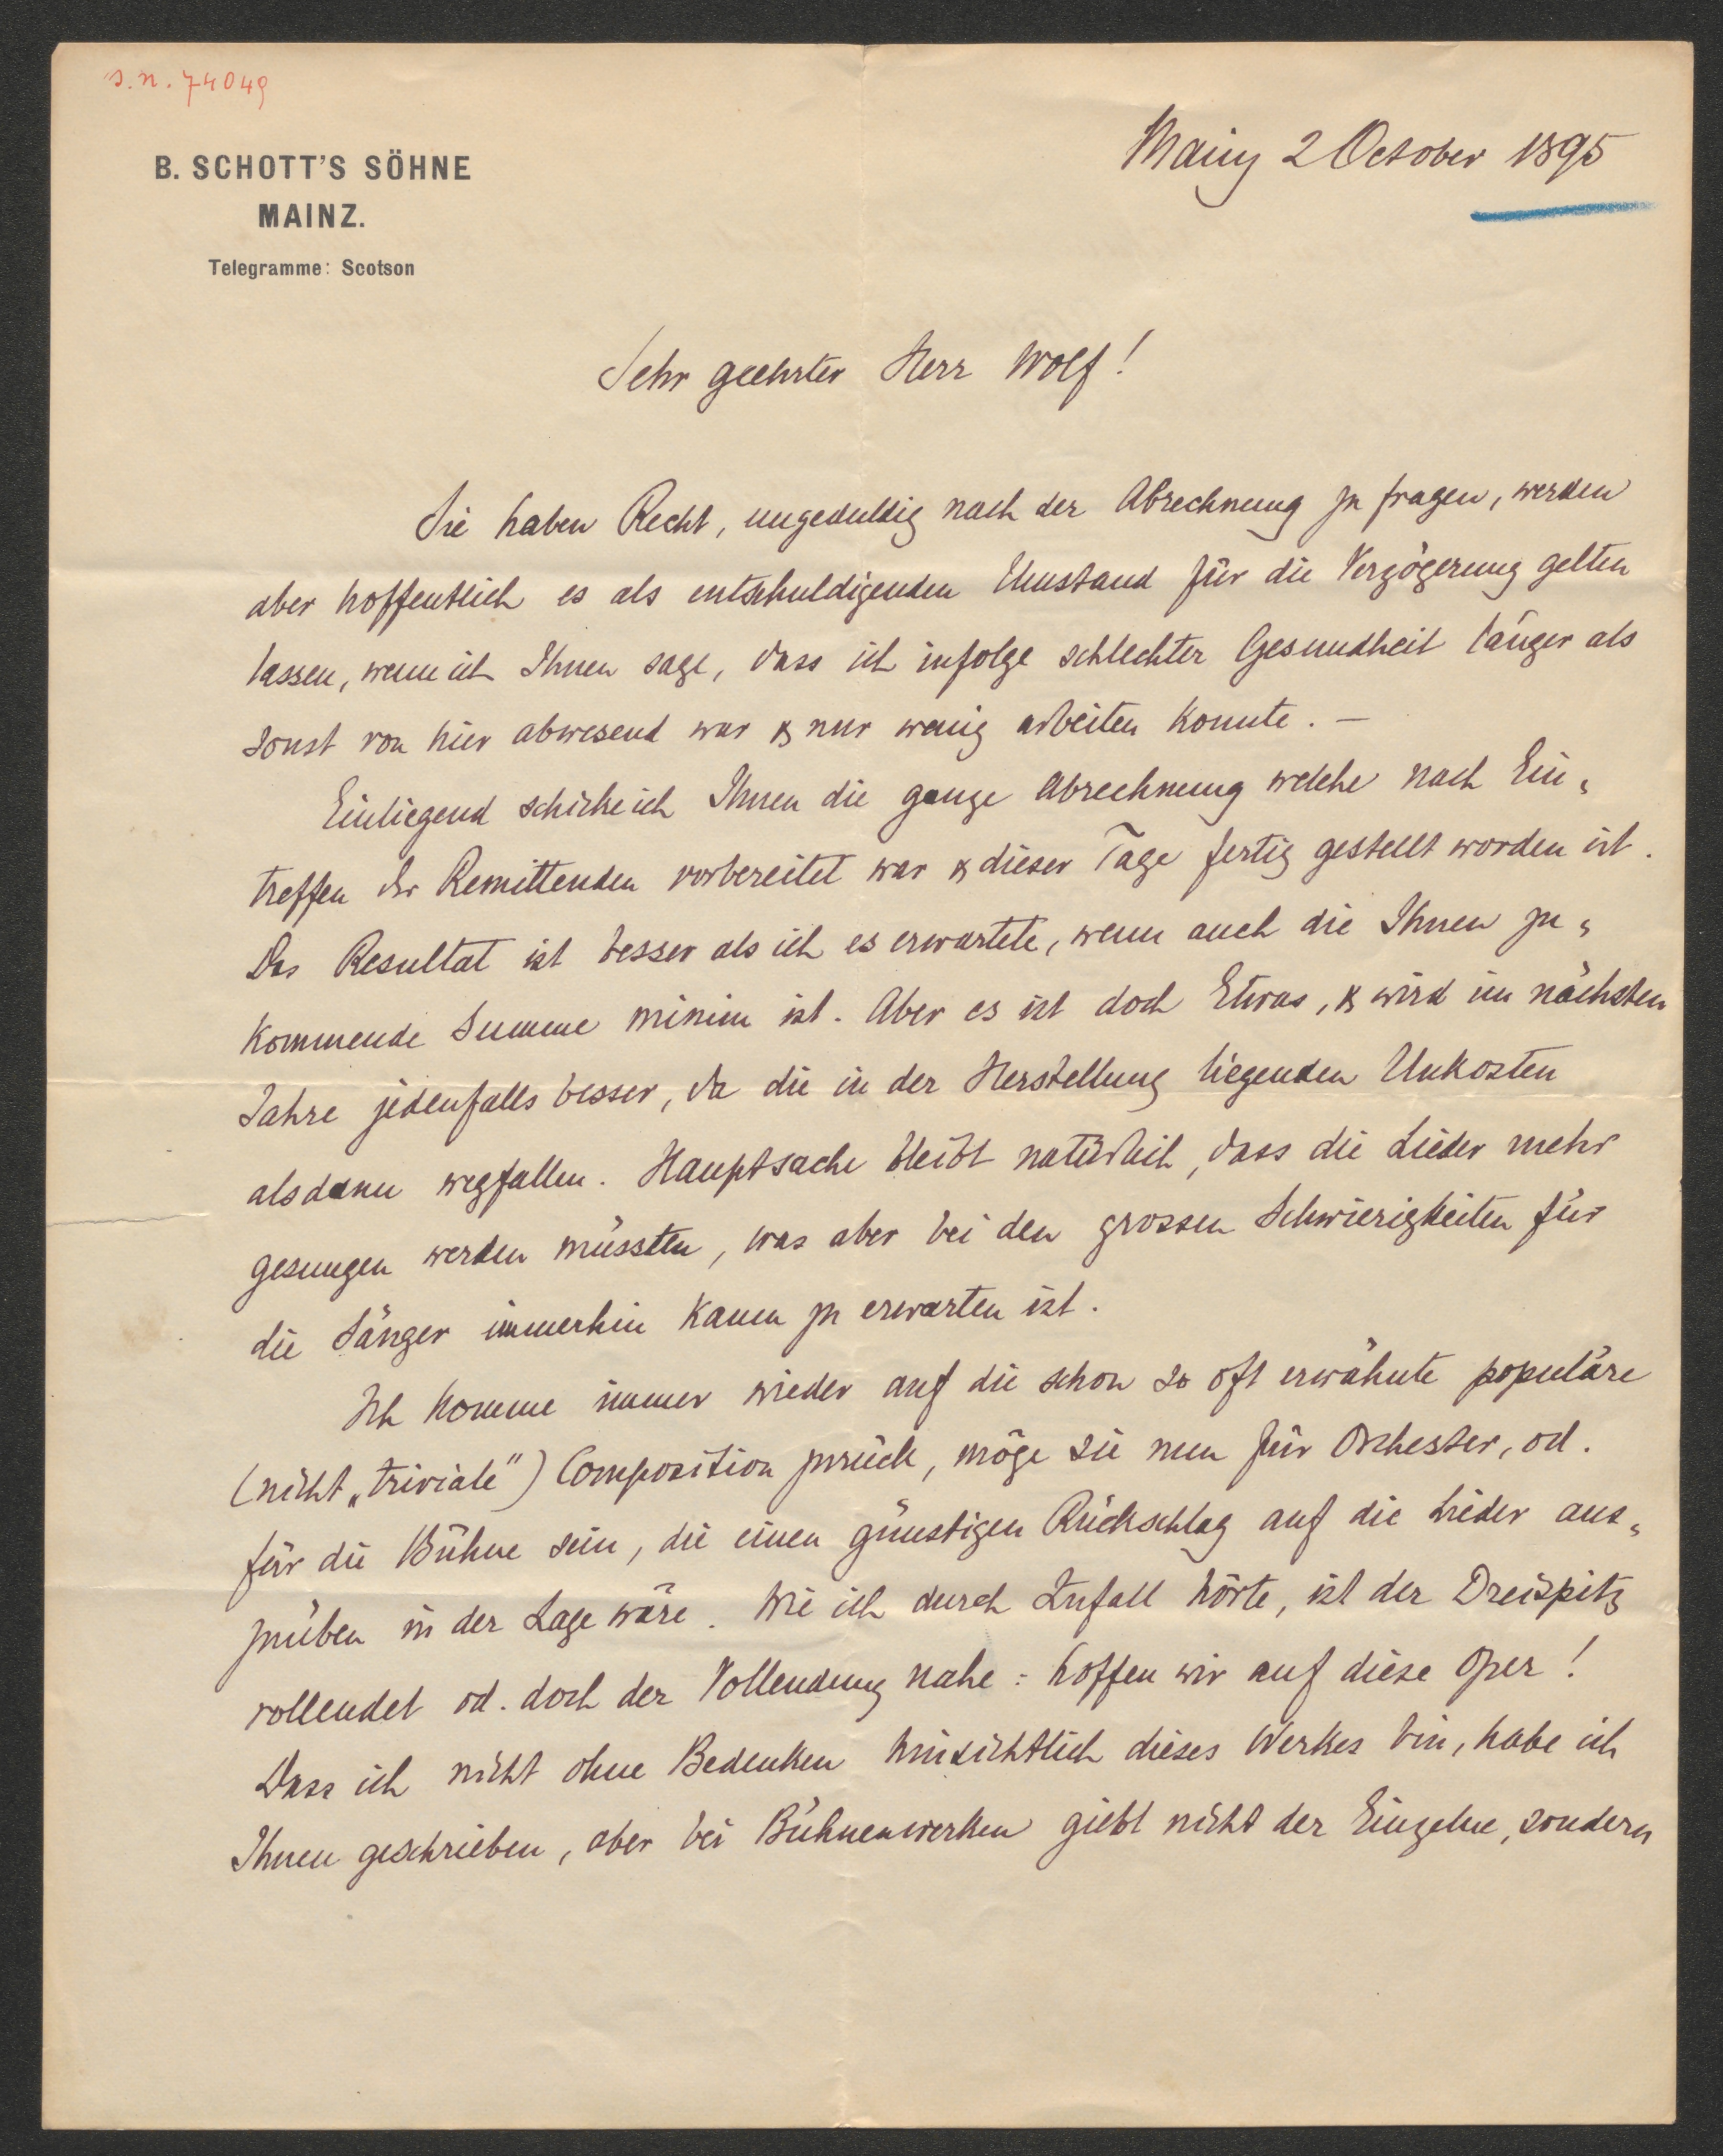 s.n. 74049
B. SCHOTT'S SÖHNE
MAINZ.
Telegramme: Scotson
Mainz 2 October 1895
Sehr geehrter Herr Wolf!
Sie haben Recht, ungeduldig nach der Abrechnung zu fragen, werden
aber hoffentlich es als entschuldigenden Umstand für die Verzögerung gelten
lassen, wenn ich Ihnen sage, dass ich infolge schlechter Gesundheit länger als
sonst von hier abwesend war & nur wenig arbeiten konnte. —
Einliegend schicke ich Ihnen die ganze Abrechnung welche nach Ein-
treffen der Remittenden vorbereitet war & dieser Tage fertig gestellt worden ist.
Das Resultat ist besser als ich es erwartete, wenn auch die Ihnen zu-
kommende Summe minim ist. Aber es ist doch Etwas, & wird im nächsten
Jahre jedenfalls besser, da die in der Herstellung liegenden Unkosten
alsdann wegfallen. Hauptsache bleibt natürlich, dass die Lieder mehr
gesungen werden müssten, was aber bei den grossen Schwierigkeiten für
die Sänger immerhin kaum zu erwarten ist.
Ich komme immer wieder auf die schon so oft erwähnte populäre
(nicht „triviale") Composition zurück, möge sie nun für Orchester, od.
für die Bühne sein, die einen günstigen Rückschlag auf die Lieder aus-
zuüben in der Lage wäre. Wie ich durch Zufall hörte, ist der Dreispitz
vollendet od. doch der Vollendung nahe: hoffen wir auf diese Oper!
Dass ich nicht ohne Bedenken hinsichtlich dieses Werkes bin, habe ich
Ihnen geschrieben, aber bei Bühnenwerken giebt nicht der Einzelne, sondern